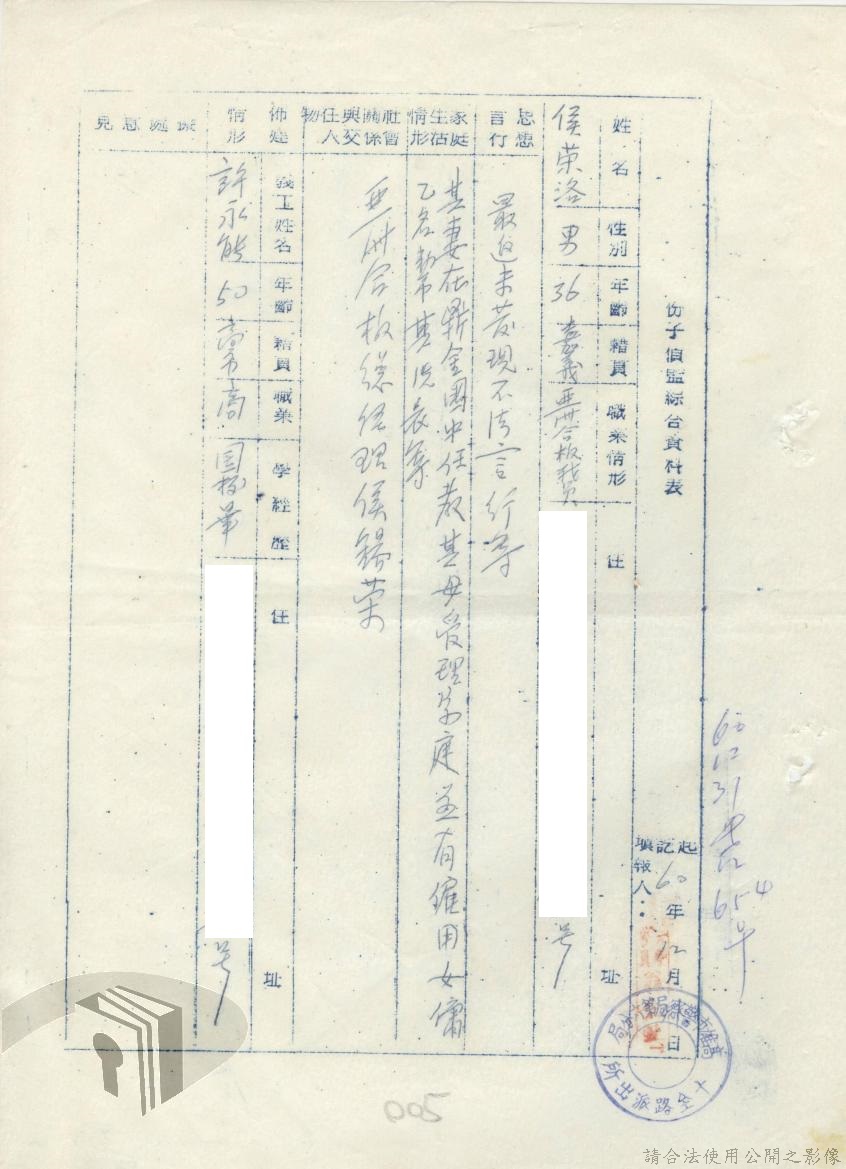 66 12 31 654
份子偵監綜合資料表
起記 60年12月 日
填報人：
姓名 性別 年齡 籍貫 職業情形 住 址
侯荣洛 男 36 嘉義 亞洲合板職員 号
思想言行
最近未發現不法言行等
家庭生活情形
其妻在鼎金國中任教其母管理家庭並有僱用女傭
乙名幫其洗衣等
社會關係與交往人物
亞洲合板總經理侯錫荣
佈建情形
義工姓名 年齡 籍貫 職業 學經歷 住 址
許永能 50 高市 商 國校畢 号
處意見
高雄市警察局
十全路派出所
005
請合法使用公開之影像